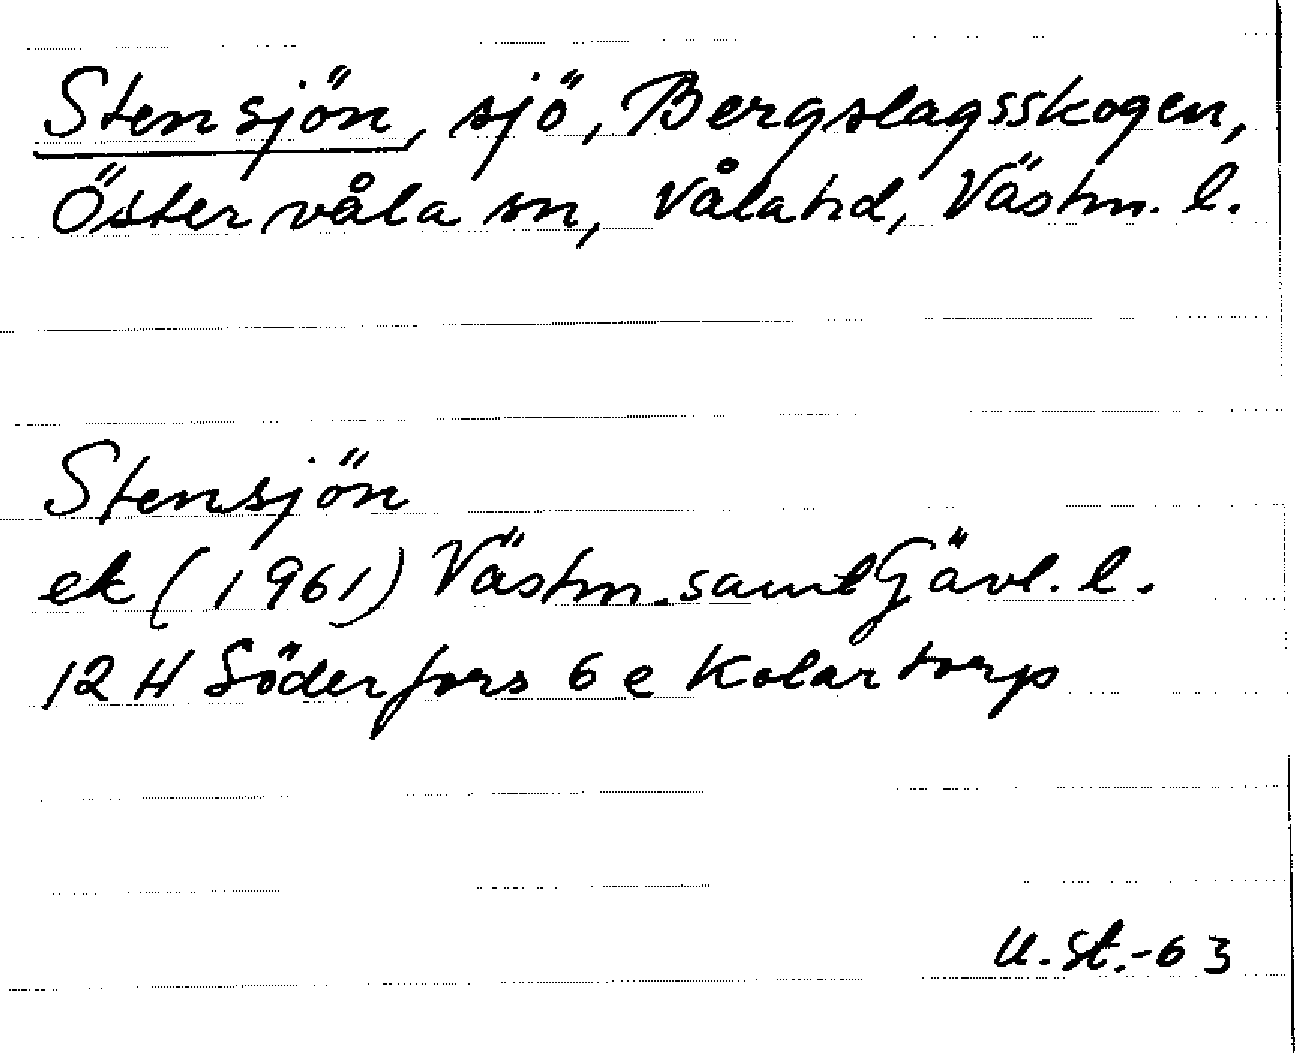 Stensjön, sjö, Bergslagsskogen,
Östervåla sn, Våla hd, Västm. l.
Stensjön
ek (1961) Västm. samt Gävl. l.
12 H Söderfors 6 e Kolartorp
U. St. -63